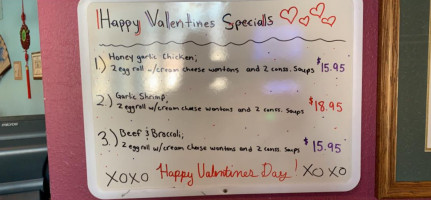 Happy Valentines Specials
1.) Honey garlic Chicken;
2 egg roll w/cream cheese wontons and 2 conss. Soups $15.95
2.) Garlic Shrimp;
2 egg roll w/cream cheese wontons and 2 conss. Soups $18.95
3.) Beef & Broccoli;
2 egg roll w/cream cheese wontons and 2 conss. Soups $15.95
XOXO Happy Valentines Day! XOXO